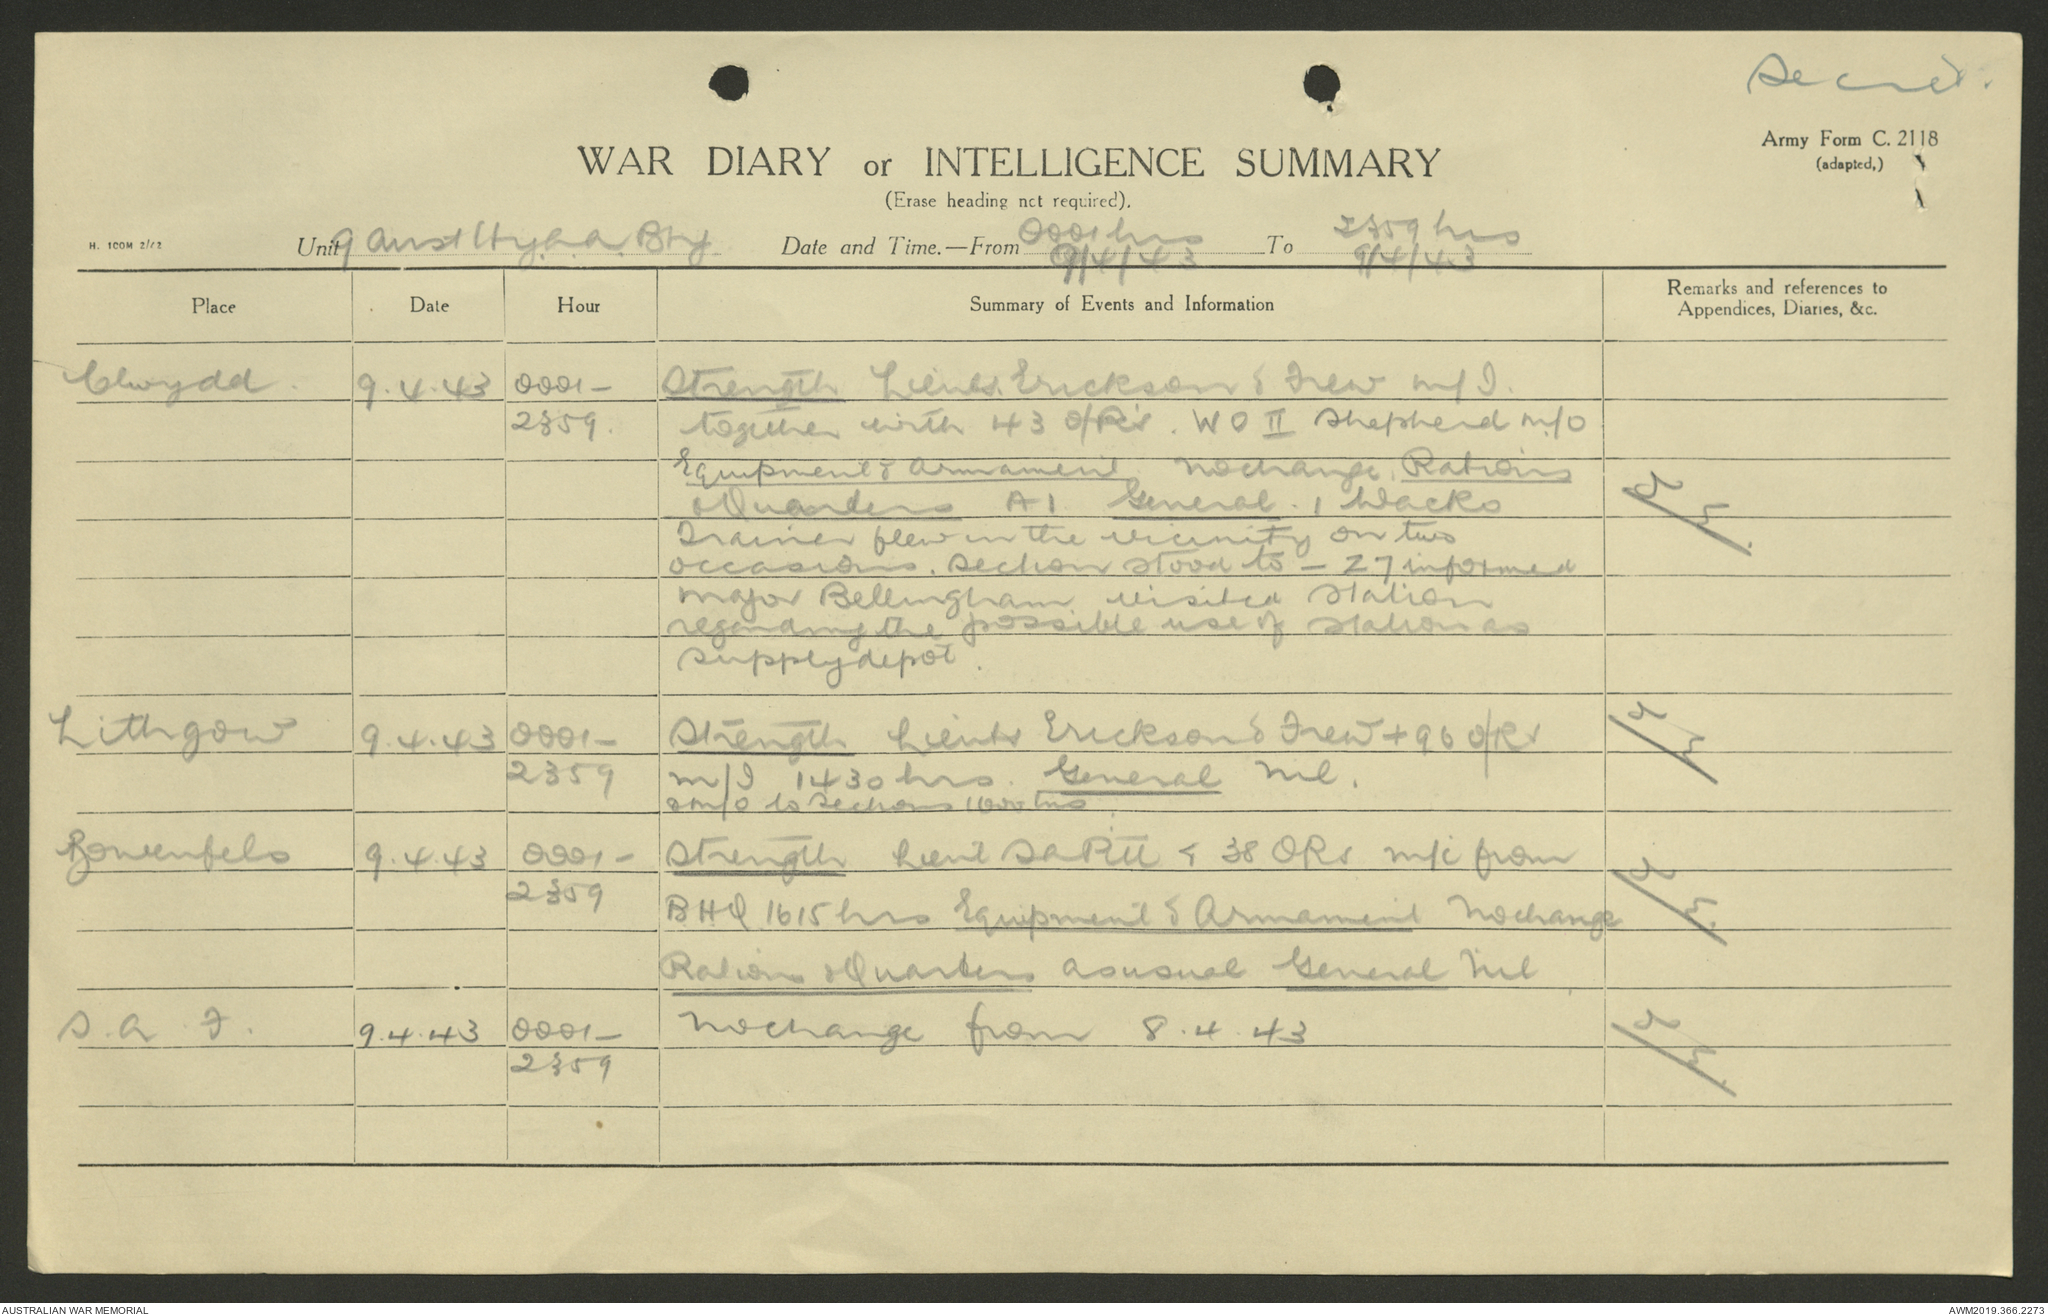 Secret.
Army Form C. 2118
(adapted,)
WAR DIARY or INTELLIGENCE SUMMARY
(Erase heading not required).
H. 100M 2/42
Unit 9 Aust Hy. A.A. Bty Date and Time.—From 0001 hrs 9/4/43 To 2359 hrs 9/4/43
Place Date Hour Summary of Events and Information Remarks and references to Appendices, Diaries, &c.
Clwydd. 9.4.43 0001- Strength Lieuts. Erickson & Frew m/I.
2359. together with 43 O/R's. WO II Shepherd m/O
Equipment & Armament No change. Rations
& Quarters A1 General. 1 Wacko
Trainer flew in the vicinity on two
occasions. Section stood to - Z7 informed
Major Bellingham visited station
regarding the possible use of station as
supply depot.
Lithgow 9.4.43 0001- Strength Lieuts Erickson & Frew + 90 O/Rs
2359 m/I 1430 hrs. General Nil.
& m/O to Sections 1600 hrs
Bowenfels 9.4.43 0001- Strength Lieut Pitt & 38 ORs m/i from
2359 BHQ 1615 hrs Equipment & Armament No change
Rations & Quarters as usual General Nil
S. A. F. 9.4.43 0001- No change from 8.4.43
2359
AUSTRALIAN WAR MEMORIAL
AWM2019.366.2273